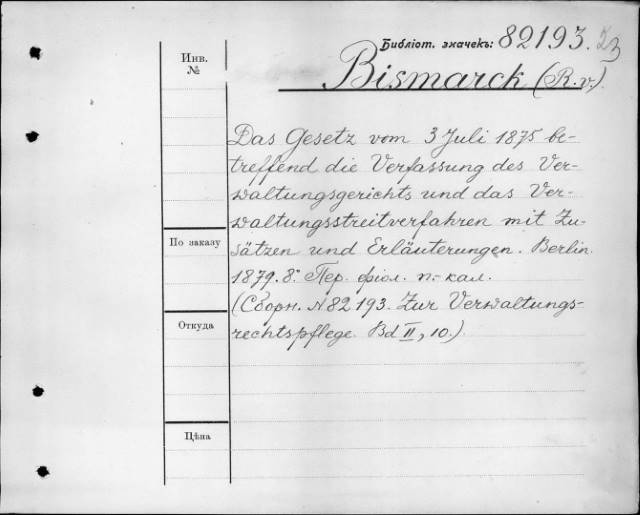 Библіот. значекъ: 82193.
Инв.
№
Bismarck (R. v.).
Das Gesetz vom 3 Juli 1875 be-
treffend die Verfassung des Ver-
waltungsgerichts und das Ver-
waltungsstreitverfahren mit Zu-
По заказу
sätzen und Erläuterungen. Berlin.
1879. 8º. Пер. фіол. п.-кал.
(Сборн. №82193. Zur Verwaltungs-
Откуда
rechtspflege. Bd II, 10.)
Цѣна